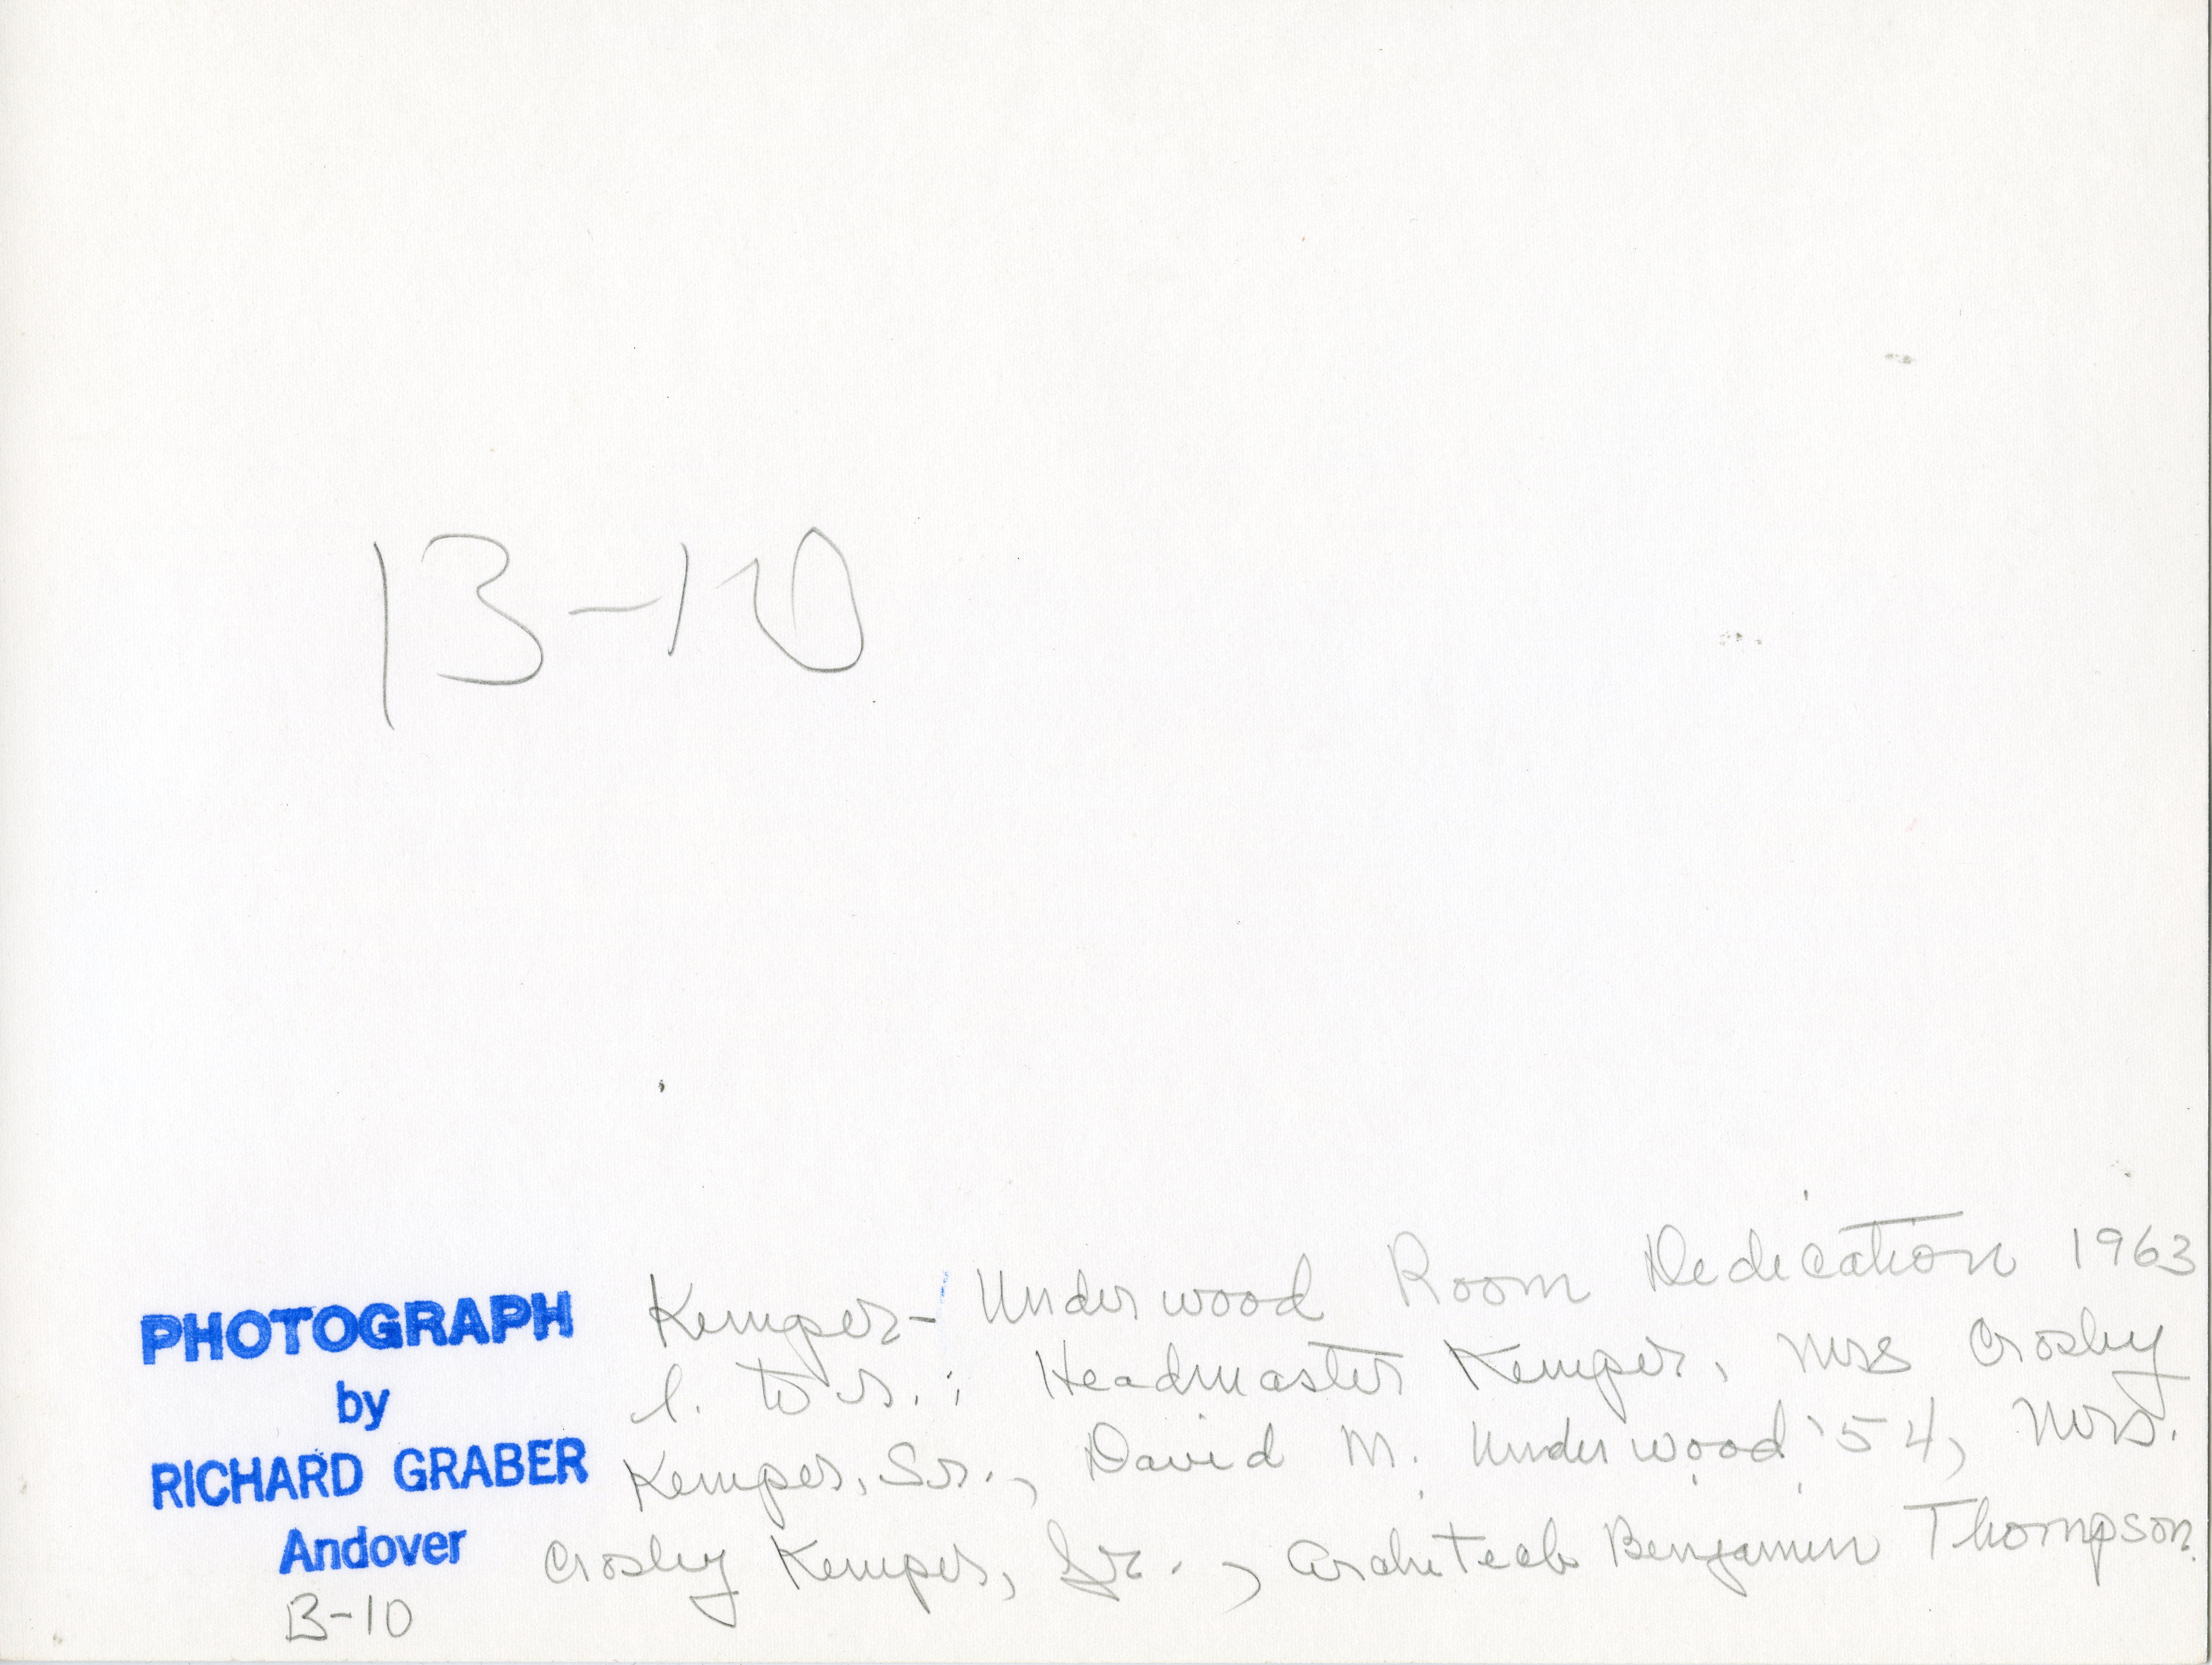 B-10
Kemper-Underwood Room Dedication 1963
l. to r.: Headmaster Kemper, Mrs Crosby
Kemper, Sr., David M. Underwood '54, Mrs.
Crosby Kemper, Jr., Architect Benjamin Thompson.
PHOTOGRAPH
by
RICHARD GRABER
Andover
B-10